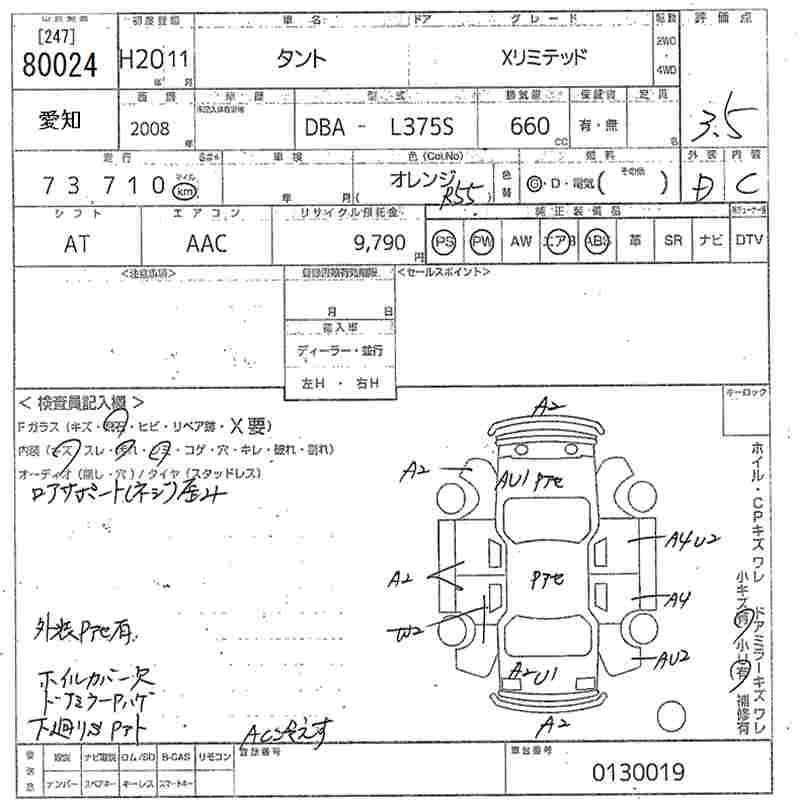 [247]
80024
初度登録
車名
ドア
グレード
駆動
評価点
H20 11
年 月
タント
Xリミテッド
2WD
・
4WD
3.5
愛知
西暦
2008
年
型式
DBA - L375S
排気量
660
CC
保証書
有・無
定員
名
走行
73,710
マイル
km
車検
年 月
色(Col.No)
オレンジ
R55
色替
燃料
G・D・電気(その他 )
外装
D
内装
C
シフト
AT
エアコン
AAC
リサイクル預託金
9,790
円
純正装備品
PS
PW
AW
エアB
ABS
革
SR
ナビ
DTV
<注意事項>
登録書類有効期限
<セールスポイント>
月 日
輸入車
ディーラー・並行
左H ・ 右H
<検査員記入欄>
キーロック
Fガラス(キズ・飛石・ヒビ・リペア跡・X要)
内装(キズ・スレ・汚れ・シミ・コゲ・穴・キレ・破れ・割れ)
オーディオ(無し・穴)/タイヤ(スタッドレス)
ロアサポート(ネジ)歪み
外装Pアセ有
ホイルカバー欠
ドアミラーPハゲ
下廻りサビPアト
ACS冷えず
A2
A2
AU1 Pアセ
A4 U2
Pアセ
A2
A4
W2
AU2
A2 U1
A2
ホイル・CPキズ ワレ
ドアミラーキズ ワレ
小キズ有 小U有 補修有
登録番号
車台番号
0130019
取説
ナビ取説
ロム/SD
B-CAS
リモコン
ナンバー
スペアキー
キーレス
スマートキー